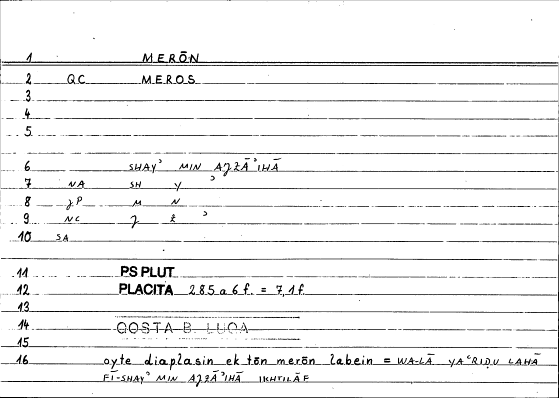 1 MERŌN
2 QC MEROS
3
4
5
6 SHAYʾ MIN AJZĀʾIHĀ
7 NA SH Y ʾ
8 JP M N
9 NC J Z ʾ
10 SA
11 PS PLUT
12 PLACITA 285a6f. = 7,1f.
13
14 QOSTA B. LUQA
15
16 oyte diaplasin ek tōn merōn labein = WA-LĀ YAʿRIḌU LAHĀ
FĪ-SHAYʾ MIN AJZĀʾIHĀ IKHTILĀF